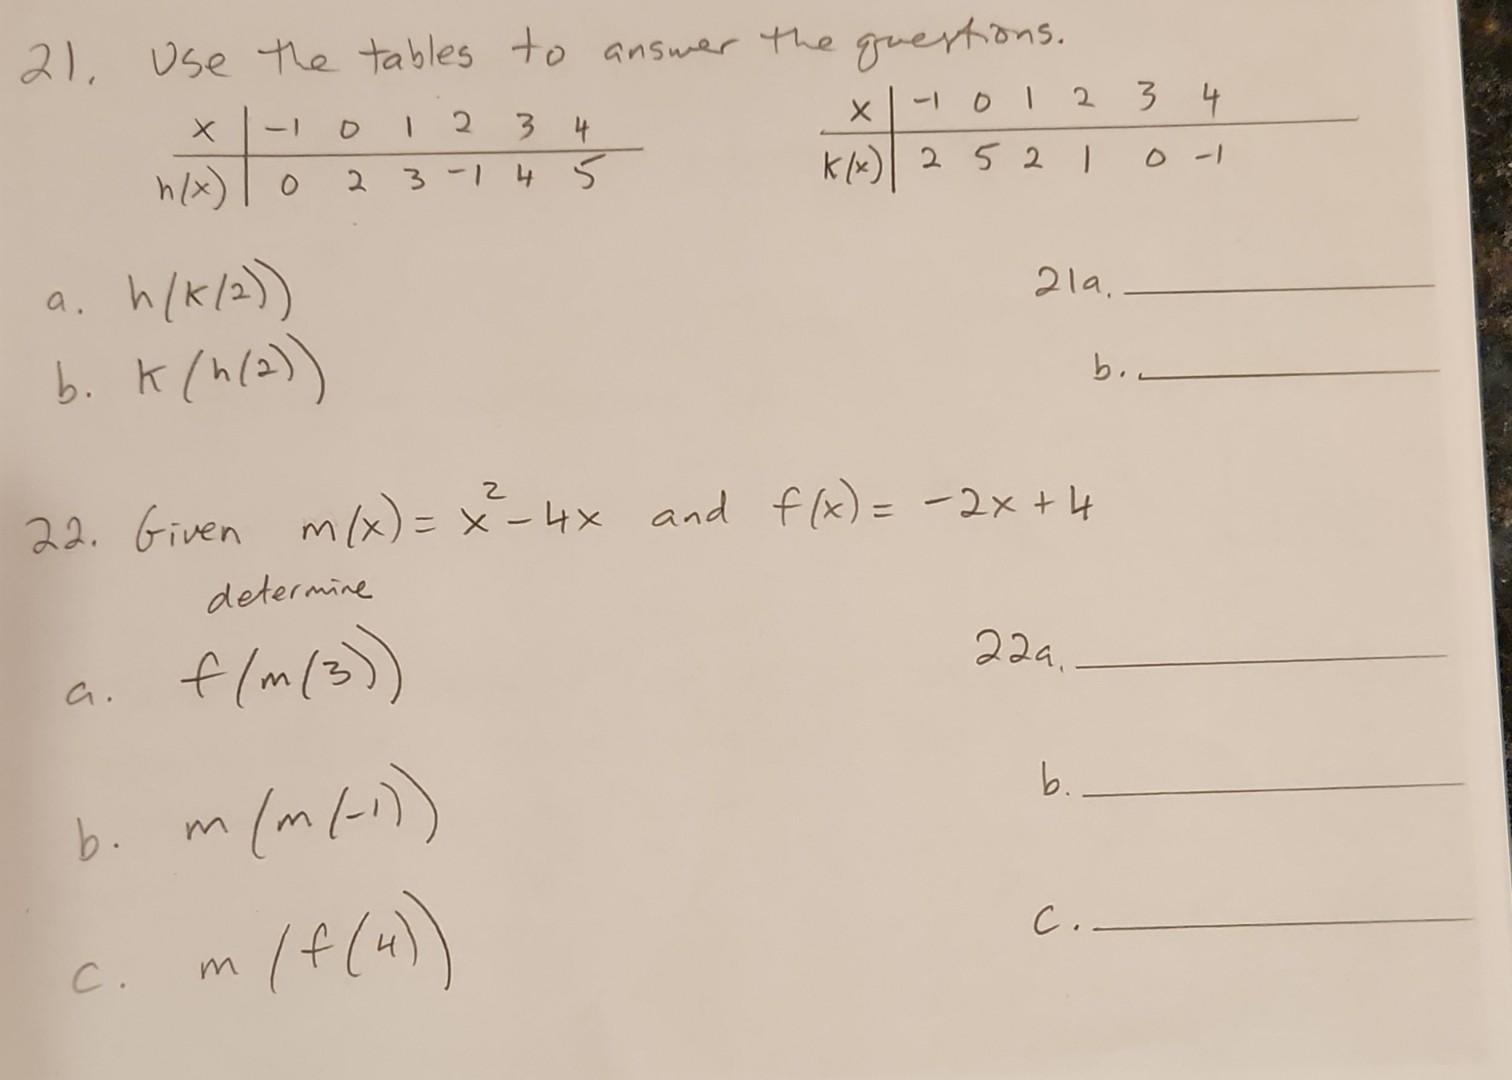 21. Use the tables to answer the questions.
x | -1 0 1 2 3 4
h(x) | 0 2 3 -1 4 5
x | -1 0 1 2 3 4
k(x) | 2 5 2 1 0 -1
a. h(k(2))
21a.
b. k(h(2))
b.
22. Given m(x) = x² - 4x and f(x) = -2x + 4
determine
a. f(m(3))
22a.
b. m(m(-1))
b.
c. m(f(4))
c.